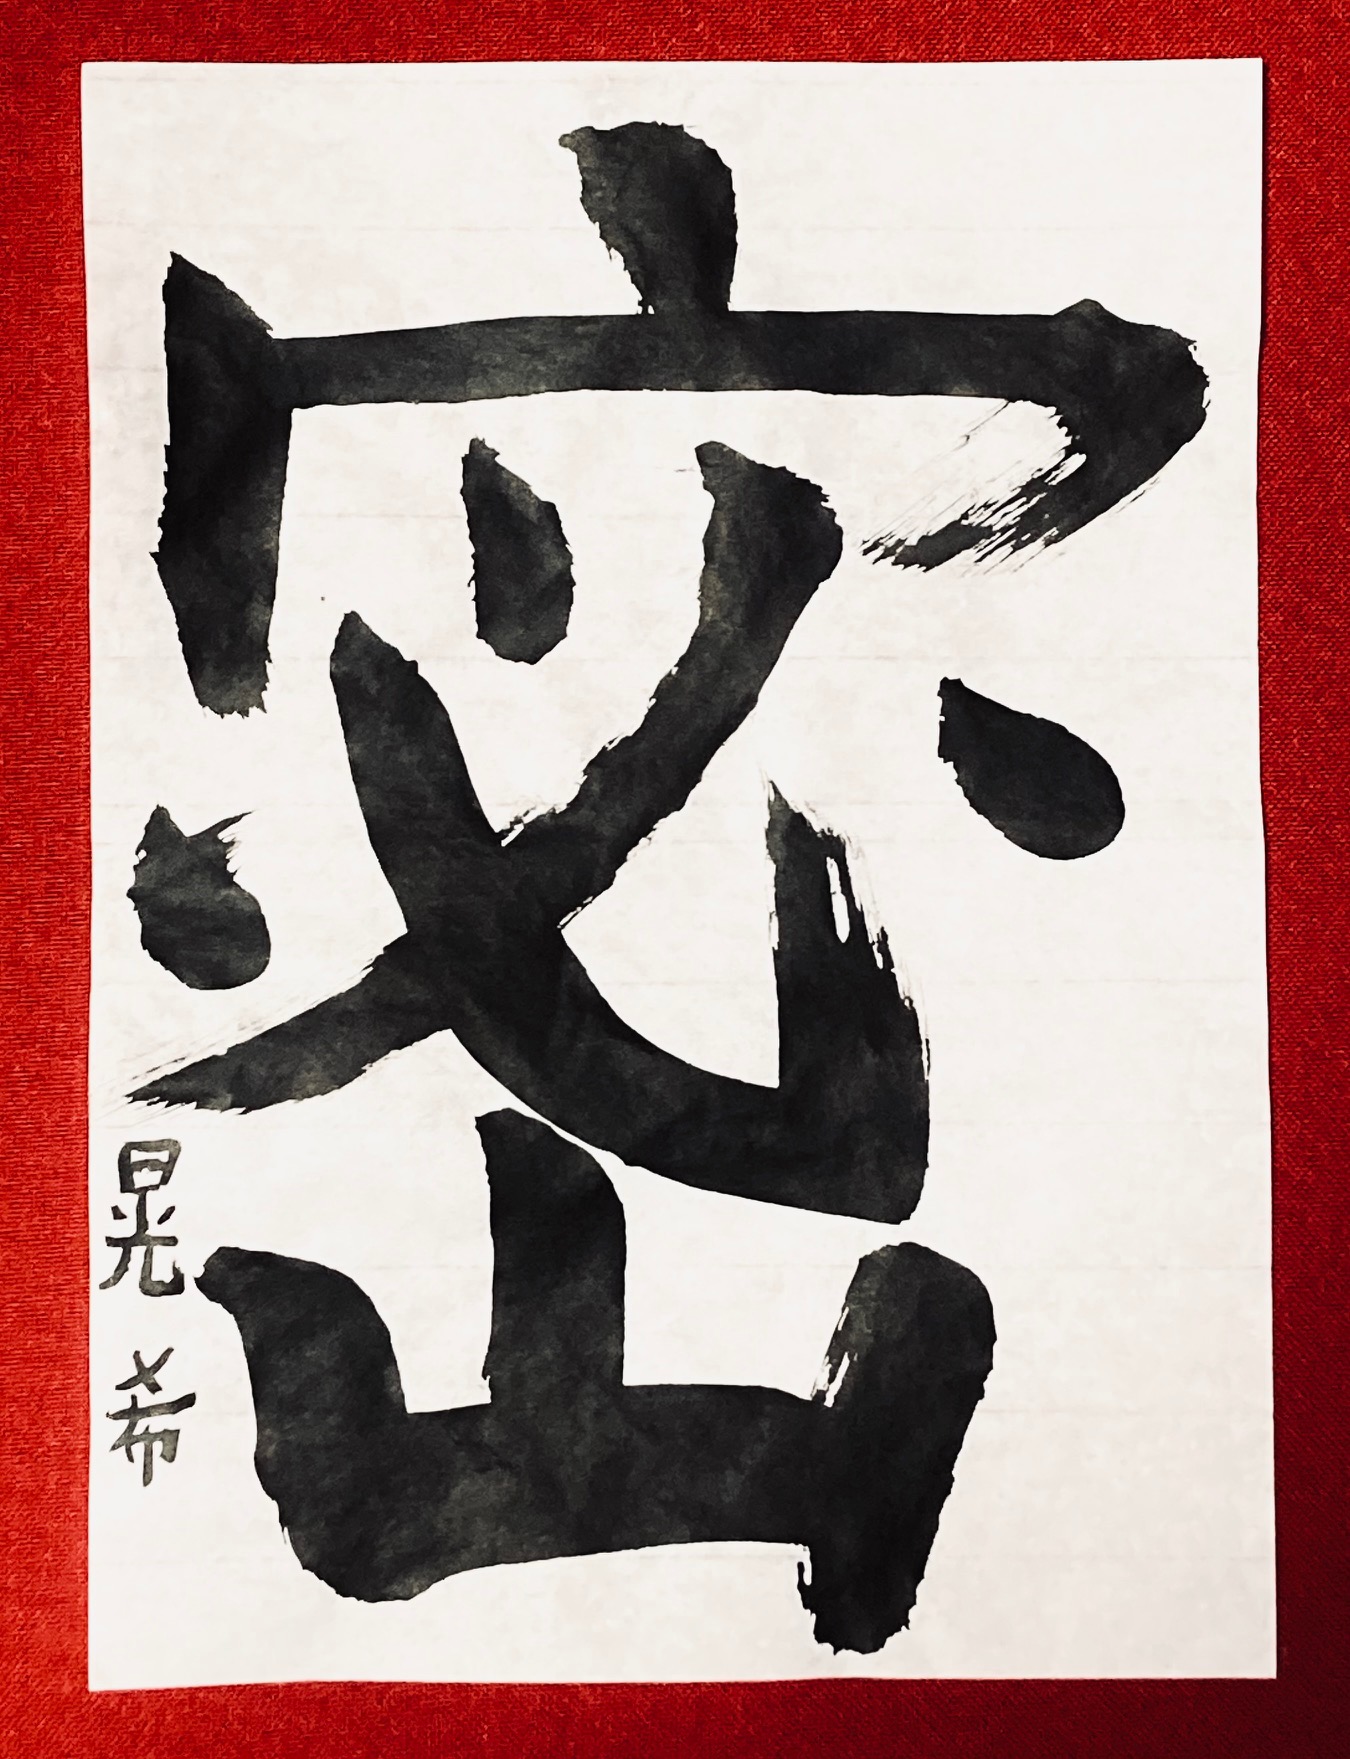 密
晃希